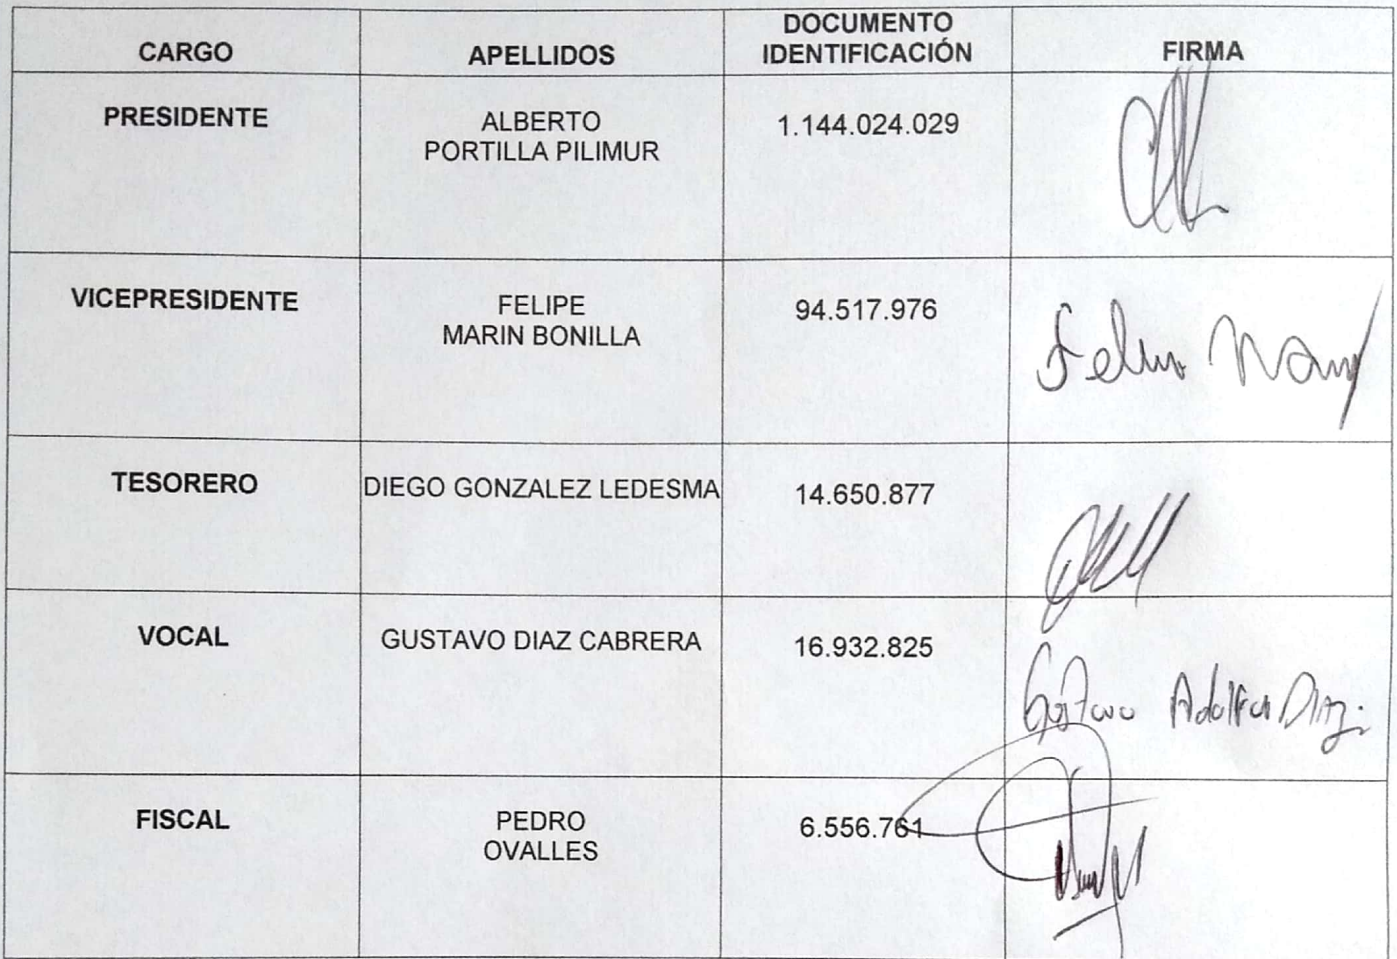 CARGO
APELLIDOS
DOCUMENTO
IDENTIFICACIÓN
FIRMA
PRESIDENTE
ALBERTO
PORTILLA PILIMUR
1.144.024.029
VICEPRESIDENTE
FELIPE
MARIN BONILLA
94.517.976
TESORERO
DIEGO GONZALEZ LEDESMA
14.650.877
VOCAL
GUSTAVO DIAZ CABRERA
16.932.825
Gustavo Adolfo Diaz.
FISCAL
PEDRO
OVALLES
6.556.761